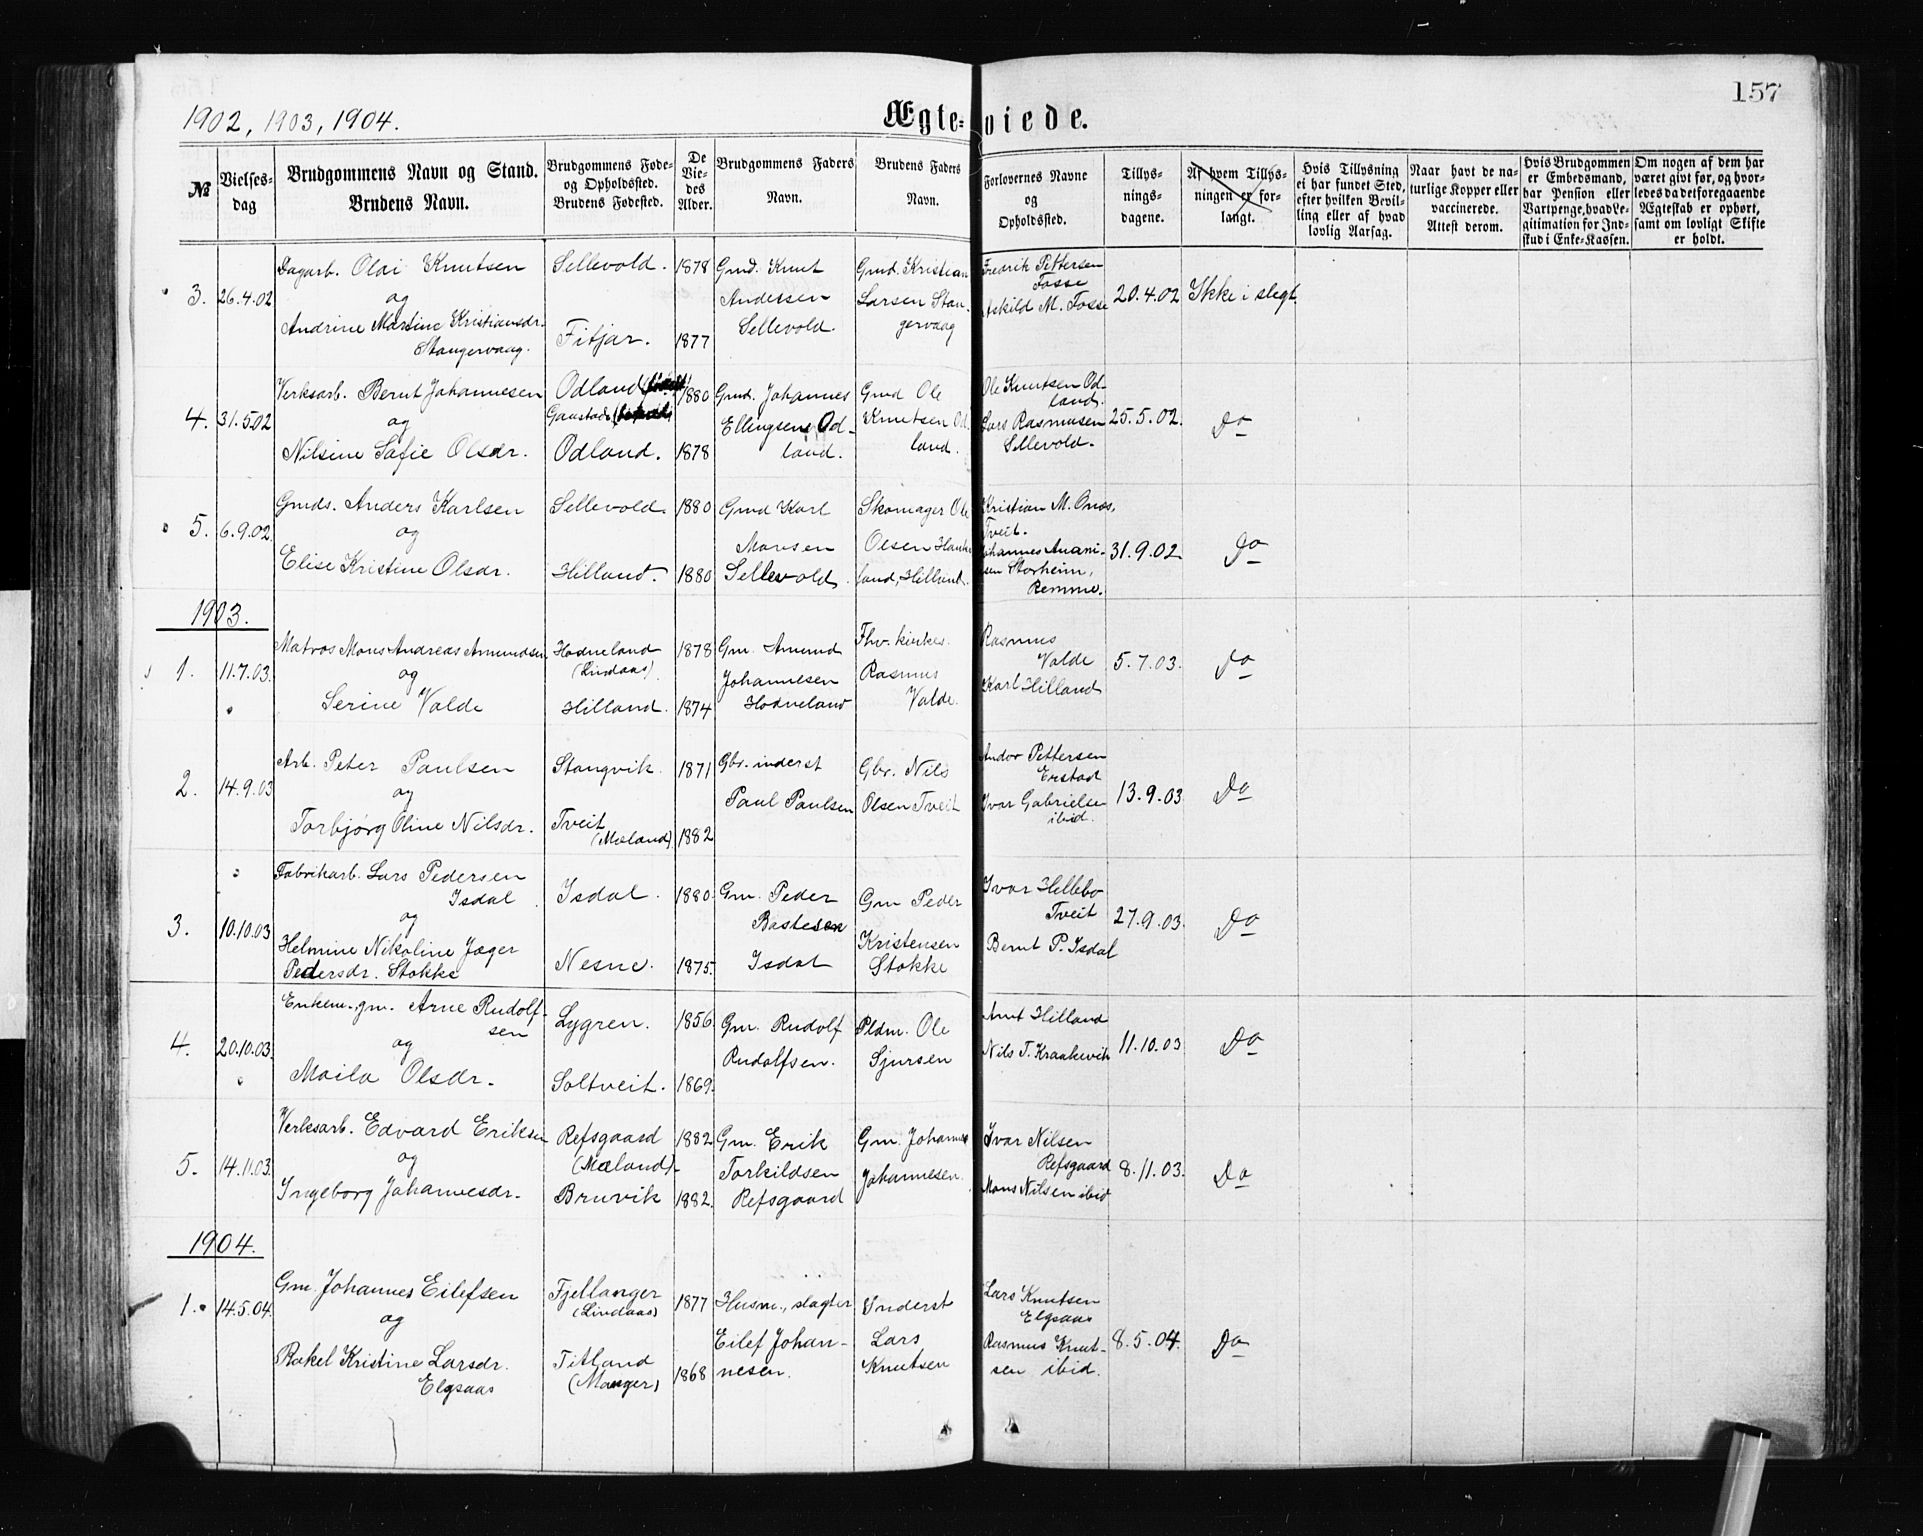 157
1902, 1903, 1904.
Ægte- viede.
№
Vielses-
dag
Brudgommens Navn og Stand.
Brudens Navn.
Brudgommens Føde-
og Opholdssted.
Brudens Fødested.
De
Vie-
des
Alder.
Brudgommens Faders
Navn.
Brudens Faders
Navn.
Forlovernes Navne
og
Opholdssted.
Tillys-
nings-
dagene.
Af hvem Tillys-
ningen er for-
langt.
Hvis Tillysning
ei har fundet Sted,
efter hvilken Bevil-
ling eller af hvad
lovlig Aarsag.
Naar havt de na-
turlige Kopper eller
vaccinerede.
Attest derom.
Hvis Brudgommen
er Embedsmand,
har Pension eller
Vartpenge, hvad Le-
gitimation for Ind-
skud i Enke-Kassen.
Om nogen af dem har
været givt før, og hvor-
ledes da det foregaaende
Ægteskab er ophørt,
samt om lovligt Skifte
er holdt.
3.
26.4.02
Dagarb. Olai Knutsen
og
Andrine Martine Kristiansdr.
Stangervaag.
Sellevold.
Fitjar.
1878
1877
Gmd. Knut
Andersen
Sellevold.
Gmd. Kristian
Larsen Stan-
gervaag
Fredrik Pettersen
Fosse
M. Fosse
20.4.02
Ikke i slegt
4.
31.5.02
Verksarb. Bernt Johannesen
og
Nilsine Sofie Olsdr.
Odland
Odland.
1880
1878
Gmd. Johannes
Ellingsen Od-
land.
Gmd Ole
Knutsen Od-
land.
Ole Knutsen Od-
land.
Lars Rasmusen
Sellevold.
25.5.02.
Do
5.
6.9.02.
Gmds. Anders Karlsen
og
Elise Kristine Olsdr.
Sellevold.
Hilland.
1880
1880
Gmd Karl
Monsen
Sellevold.
Skomager Ole
Olsen
land, Hilland.
Kristian M.
Tveit.
Johannes Anani-
sen Storheim,
Remme.
31.9.02.
Do
1903.
1.
11.7.03.
Matros Mons Andreas Amundsen
og
Serine Valde
Hodneland
(Lindaas).
Hilland.
1878
1874
Gm. Amund
Johannesen
Hodneland
Fhv. kirkes.
Rasmus
Valde.
Rasmus
Valde
Karl Hilland
5.7.03.
Do
2.
14.9.03
Arb. Peter Paulsen
og
Torbjørg Oline Nilsdr.
Stangvik.
Tveit
(Mæland).
1871
1882
Gbr. inderst
Paul Paulsen
Gbr. Nils
Olsen Tveit
Andor Pettersen
Erstad
Ivar Gabrielse
ibid.
13.9.03.
Do
3.
10.10.03
Fabrikarb. Lars Pedersen
Isdal
og
Helmine Nikoline Jæger
Pedersdr. Stokke
Isdal.
Nesne.
1880.
1875.
Gm. Peder
Bastesen
Isdal
Gm Peder
Kristensen
Stokke
Ivar Hellebo
Tveit
Bernt P. Isdal
27.9.03.
Do
4.
20.10.03.
Enkem. gm. Arne Rudolf-
sen
og
Maila Olsdr.
Lygren.
Soltveit.
1856.
1869.
Gm. Rudolf
Rudolfsen.
Pldm. Ole
Sjursen
Amt Hilland
Nils T. Kraakevik
11.10.03
Do
5.
14.11.03.
Verksarb. Edvard Eriksen
og
Ingeborg Johannesdr.
Refsgaard
(Mæland).
Bruvik
1882
1882.
Gm. Erik
Torkildsen
Refsgaard
Gm. Johannes
Johannesen.
Ivar Nilsen
Refsgaard
Mons Nilsen ibid
8.11.03.
Do
1904.
1.
14.5.04.
Gm. Johannes Eilefsen
og
Rakel Kristine Larsdr.
Elgsaas
Fjellanger
(Lindaas)
Titland
(Manger)
1877
1868
Husm., slagter
Eilef Johan-
nesen.
Inderst
Lars
Knutsen
Lars Knutsen
Elgsaas
Rasmus Knut-
sen ibid.
8.5.04.
Do